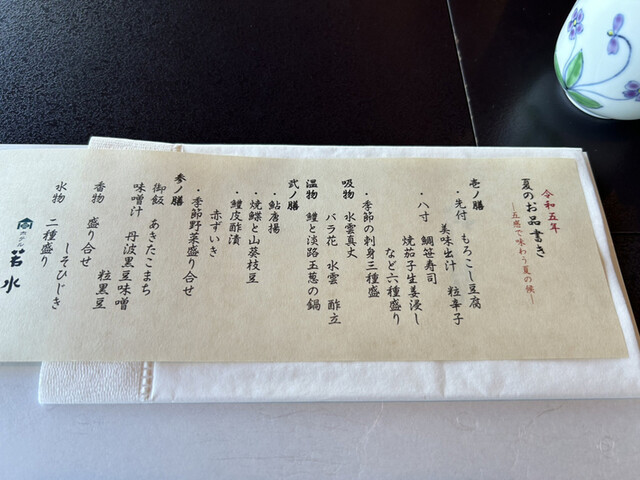 令和五年
夏のお品書き
―五感で味わう夏の候―
壱ノ膳
・先付 もろこし豆腐
美味出汁 粒辛子
・八寸 鯛笹寿司
焼茄子生姜浸し
など六種盛り
・季節の刺身三種盛
吸物 水雲真丈
バラ花 水雲 酢立
温物 鱧と淡路玉葱の鍋
弐ノ膳
・鮎唐揚
・焼鰈と山葵枝豆
・鱧皮酢漬
赤ずいき
・季節野菜盛り合せ
参ノ膳
御飯 あきたこまち
味噌汁 丹波黒豆味噌
粒黒豆
香物 盛り合せ
しそひじき
水物 二種盛り
ホテル 若水